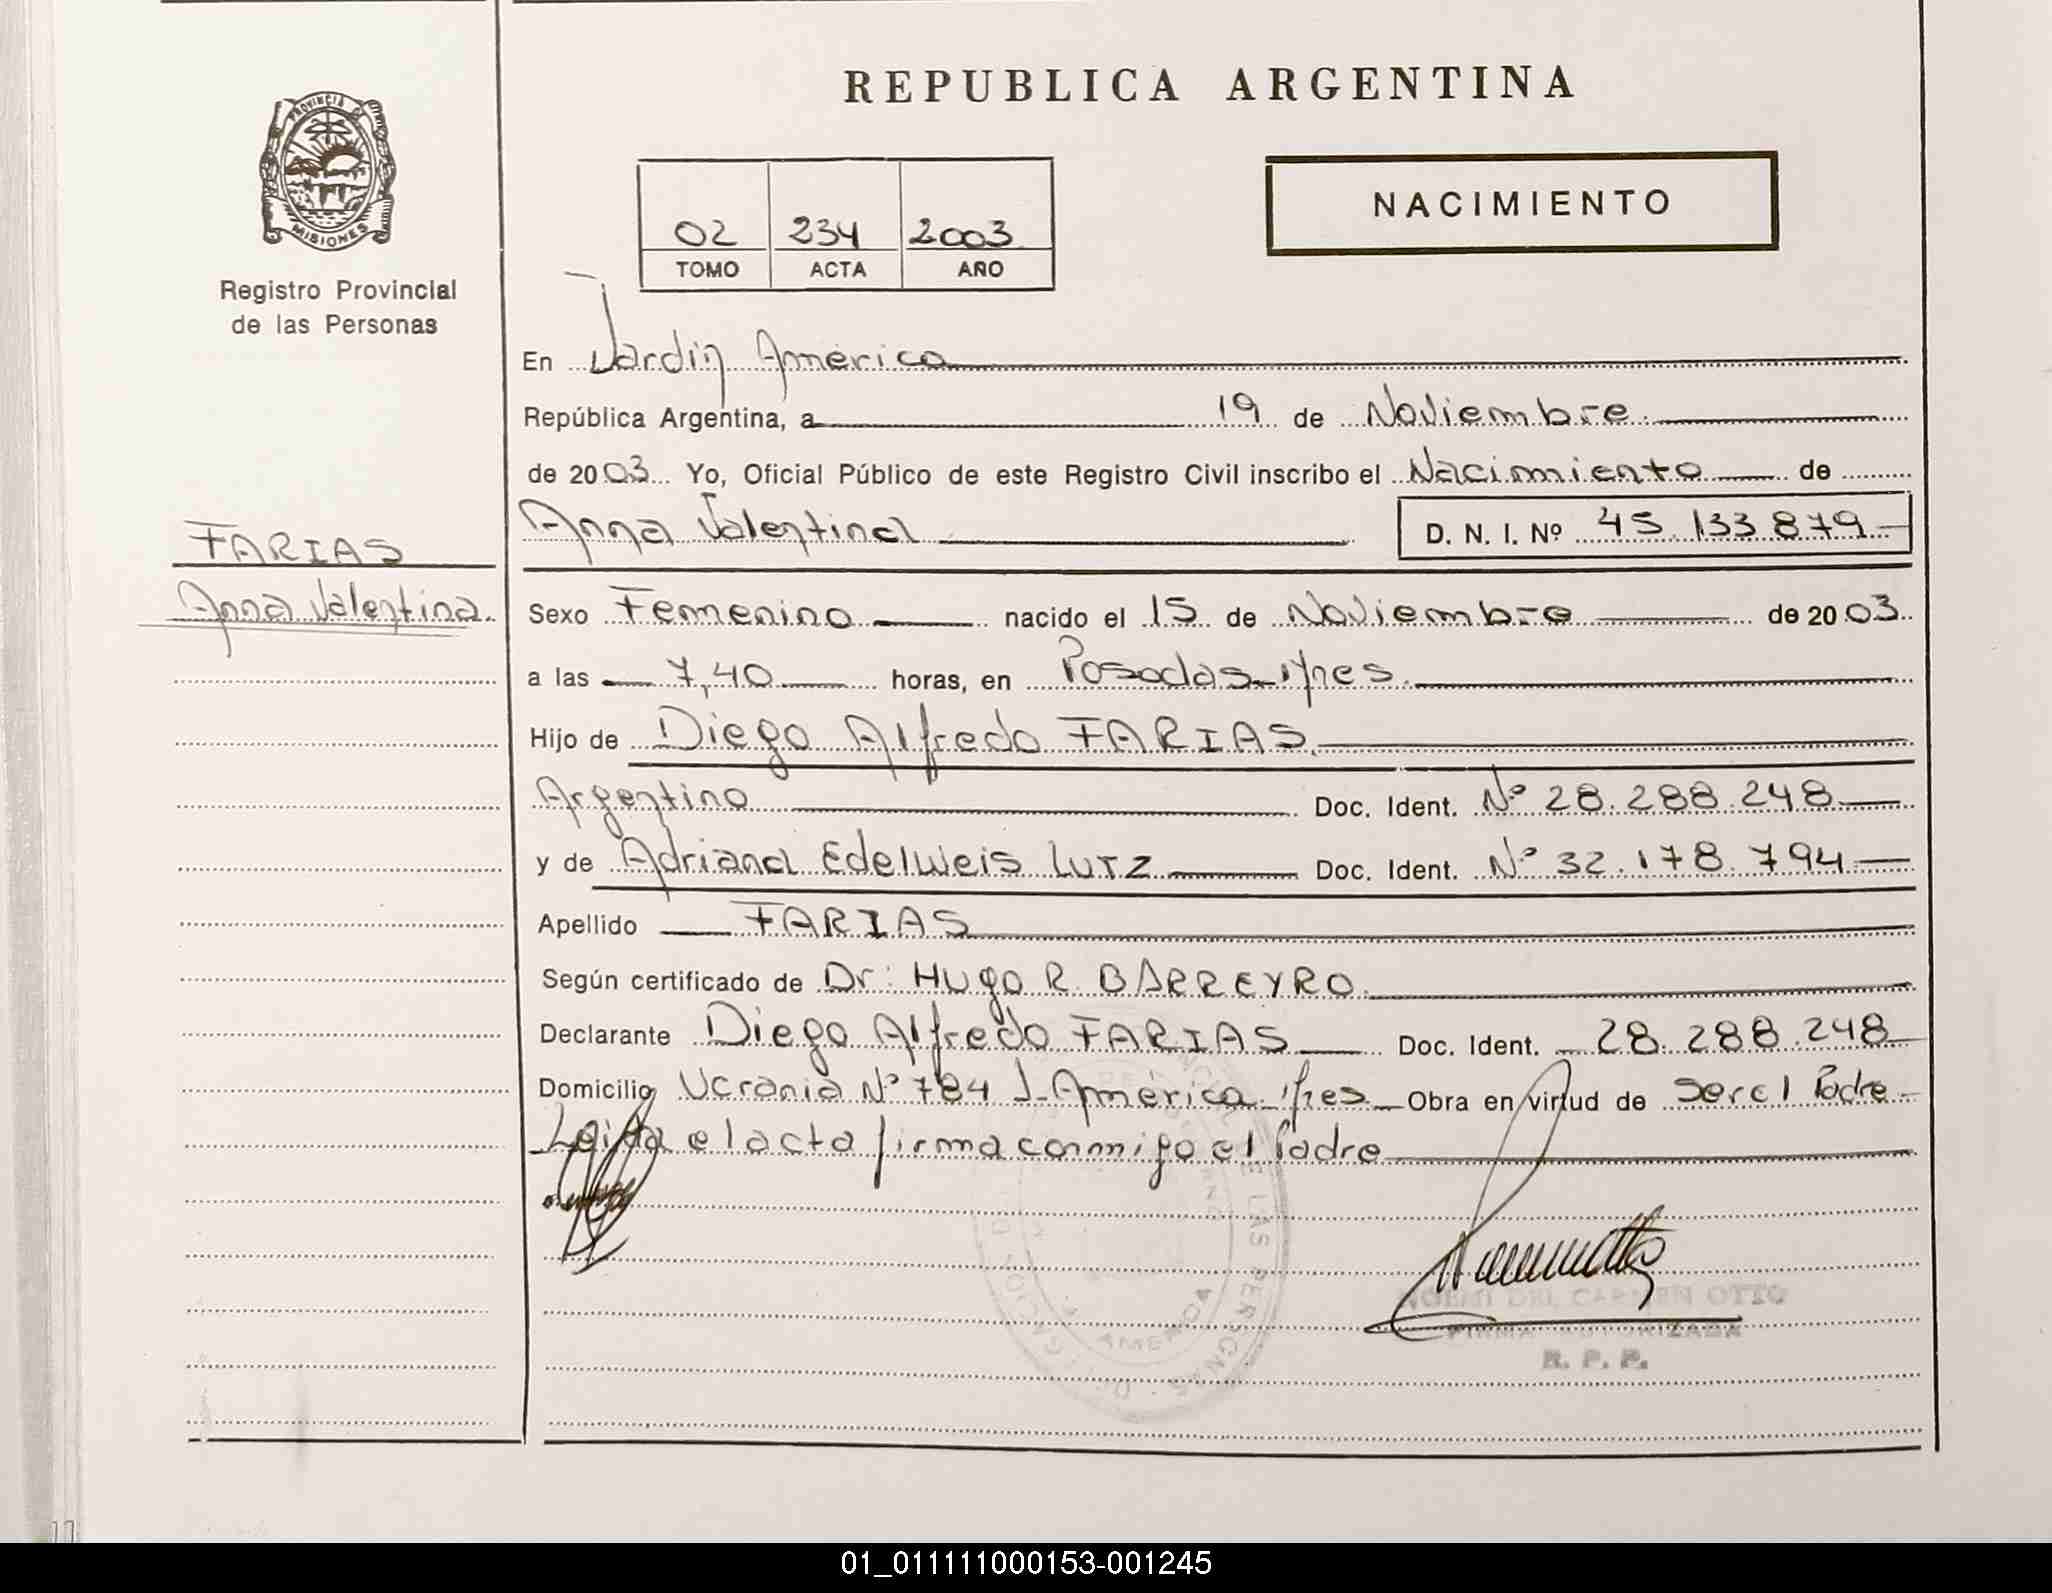 REPUBLICA ARGENTINA
PROVINCIA
MISIONES
Registro Provincial
de las Personas
NACIMIENTO
02 234 2003
TOMO ACTA AÑO
En Jardín América
República Argentina, a 19 de Noviembre
de 2003 Yo, Oficial Público de este Registro Civil inscribo el Nacimiento de
FARIAS
Anna Valentina
Anna Valentina D. N. I. Nº 45.133.879
Sexo Femenino nacido el 15 de Noviembre de 2003
a las 7,40 horas, en Posadas Mnes.
Hijo de Diego Alfredo FARIAS
Argentino Doc. Ident. Nº 28.288.248
y de Adriana Edelweis LUTZ Doc. Ident. Nº 32.178.794
Apellido FARIAS
Según certificado de Dr: Hugo R. BARREYRO
Declarante Diego Alfredo FARIAS Doc. Ident. 28.288.248
Domicilio Ucrania Nº 784 J. América Mnes Obra en virtud de ser el Padre
Leida el acta firma conmigo el Padre
NOEMI DEL CARMEN OTTO
FIRMA AUTORIZADA
R. P. P.
01_011111000153-001245